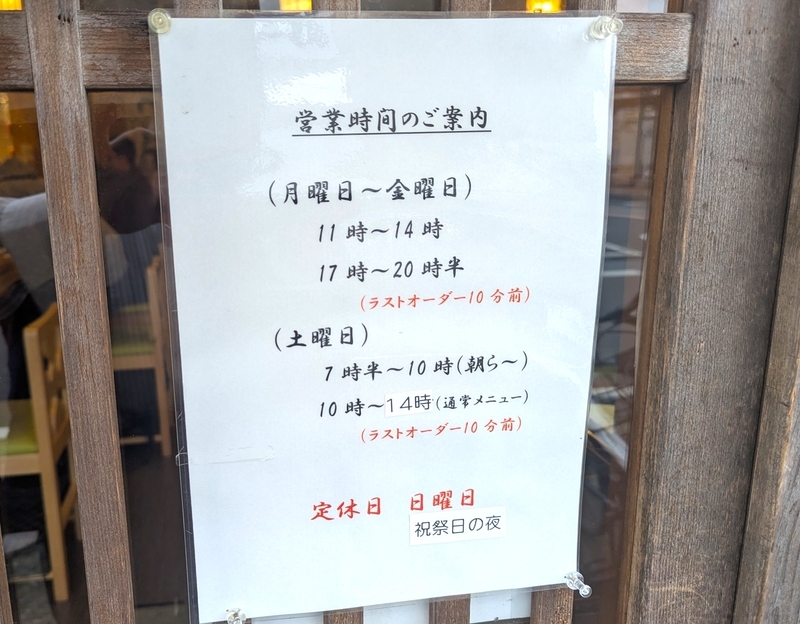 営業時間のご案内
(月曜日～金曜日)
11時～14時
17時～20時半
(ラストオーダー10分前)
(土曜日)
7時半～10時(朝ら～)
10時～14時(通常メニュー)
(ラストオーダー10分前)
定休日 日曜日
祝祭日の夜